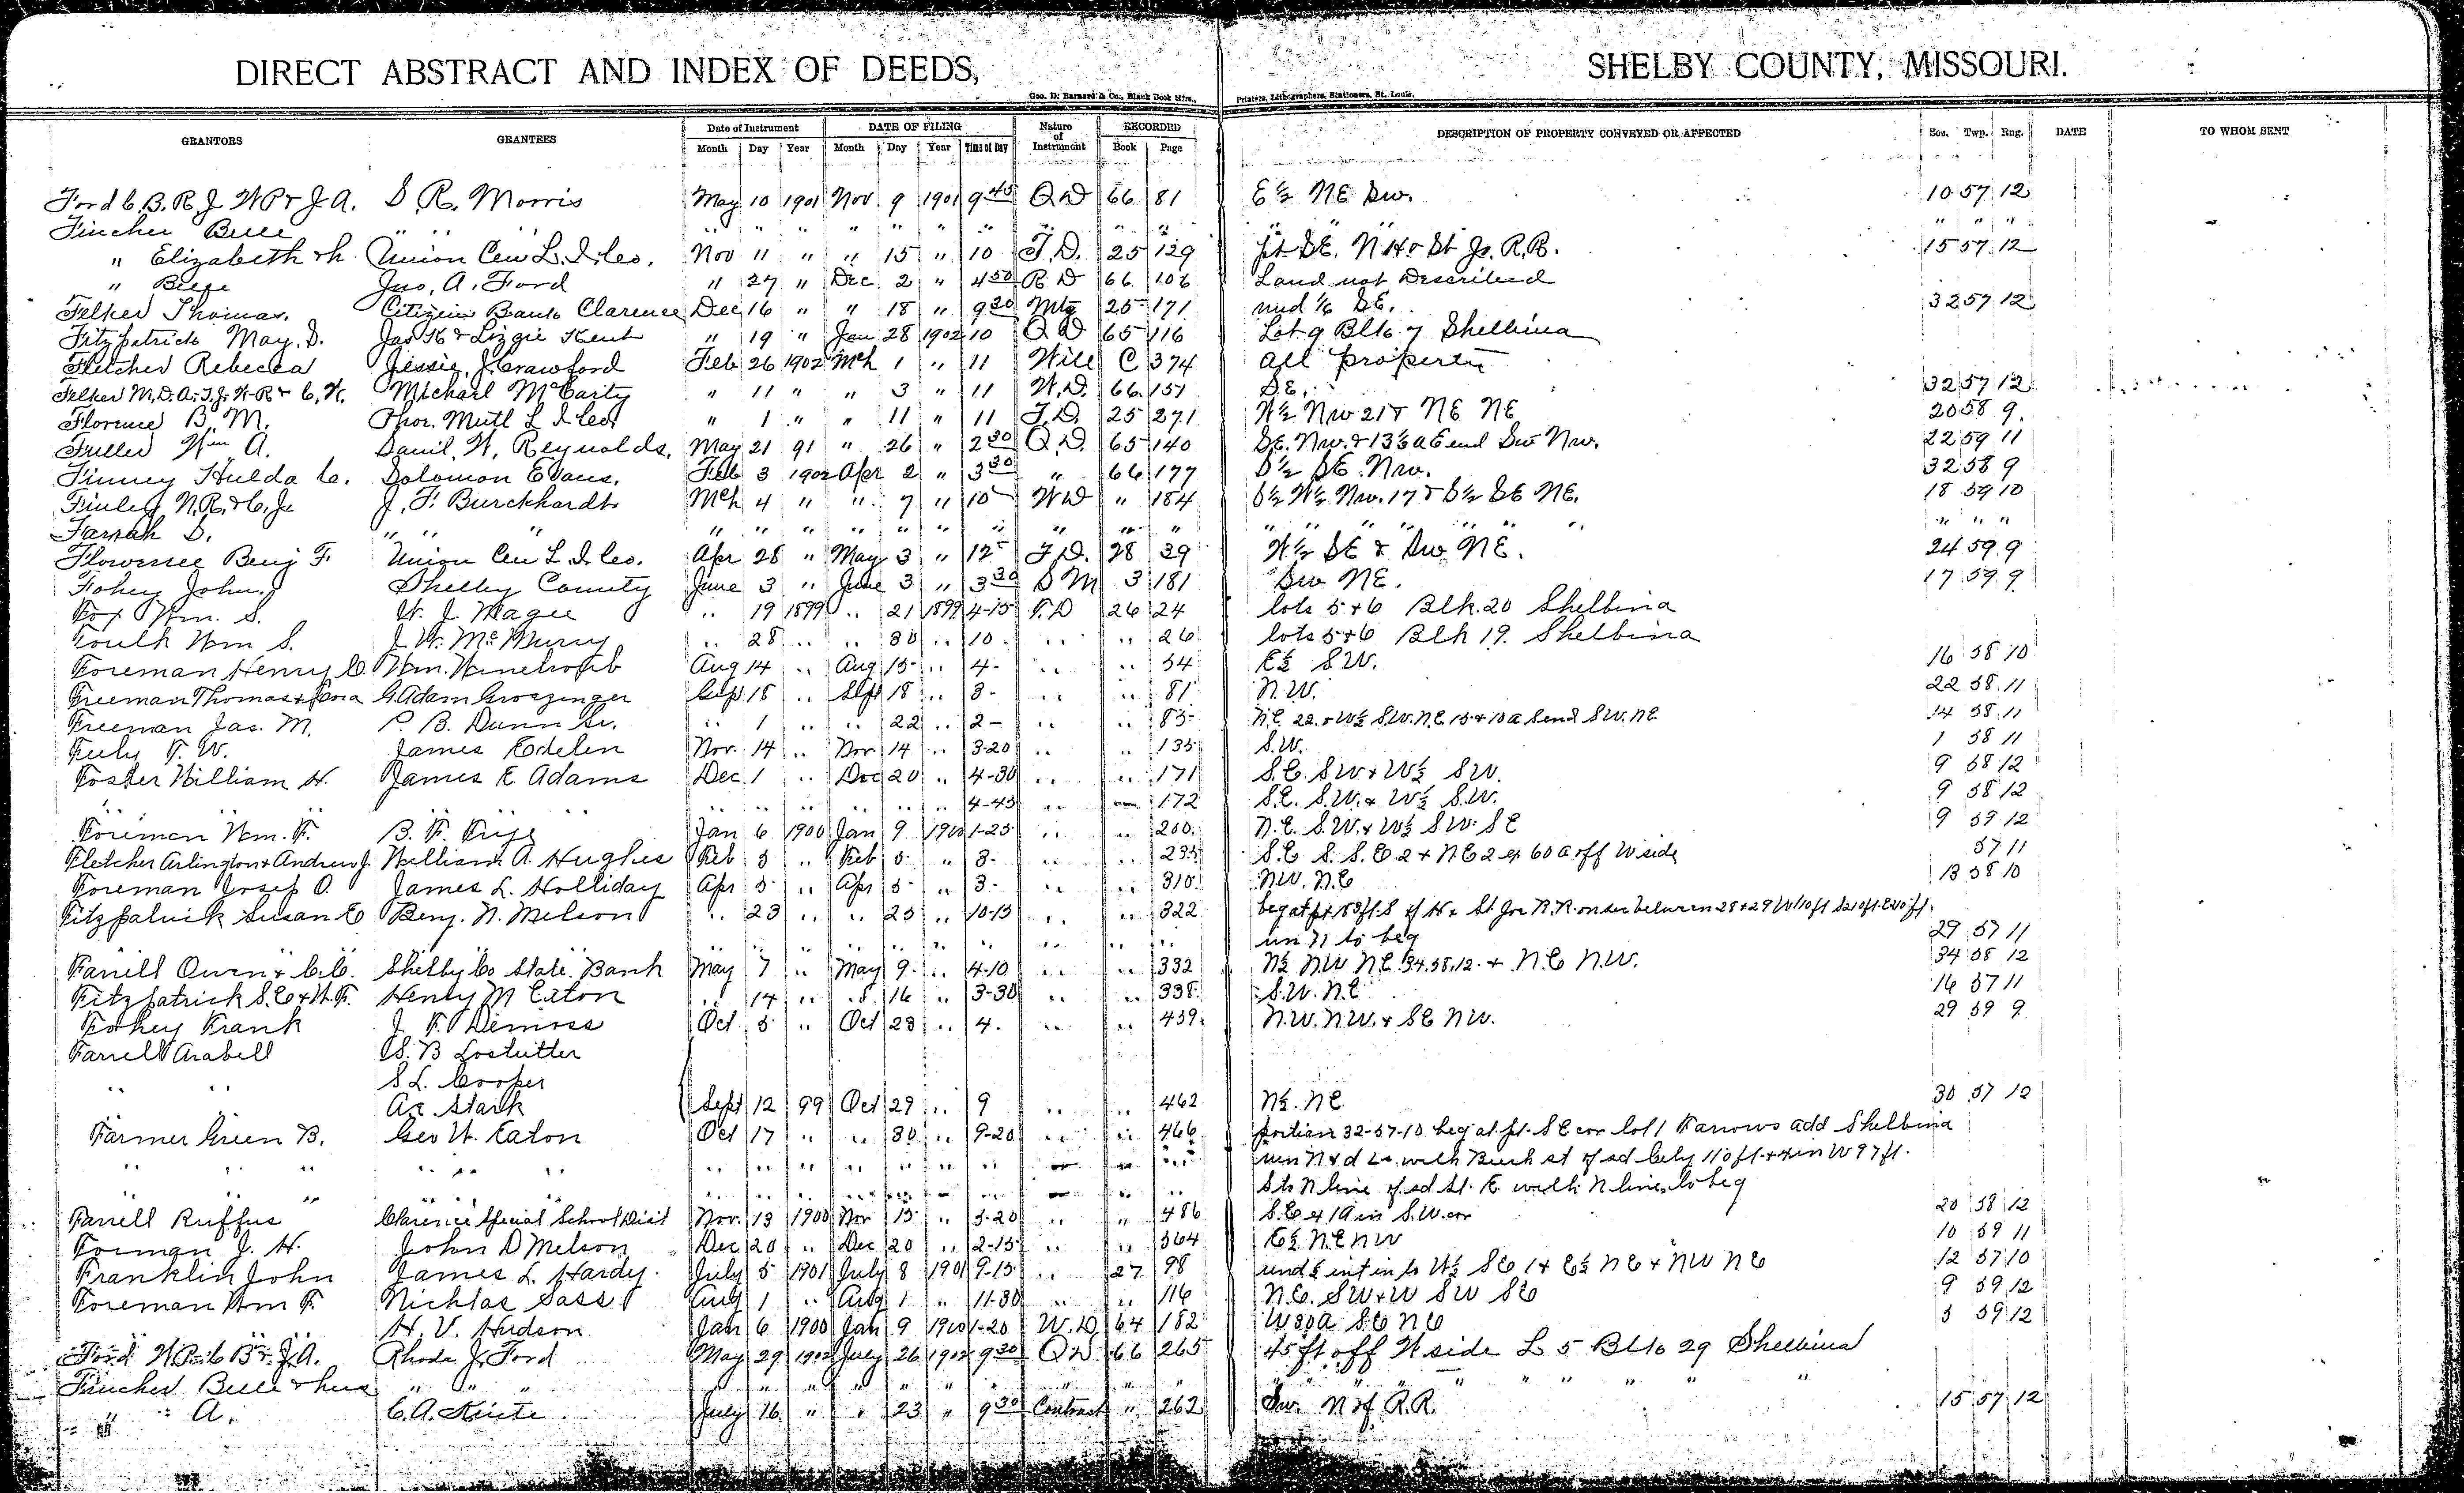 DIRECT ABSTRACT AND INDEX OF DEEDS, SHELBY COUNTY, MISSOURI.
Geo. D. Barnard & Co., Blank Book Mfrs., Printers, Lithographers, Stationers, St. Louis.
GRANTORS GRANTEES Date of Instrument DATE OF FILING Nature of Instrument RECORDED DESCRIPTION OF PROPERTY CONVEYED OR AFFECTED Sec. Twp. Rng. DATE TO WHOM SENT
Month Day Year Month Day Year Time of Day Book Page
Ford C. B. R. J. W P & J. A. S. R. Morris May 10 1901 Nov. 9 1901 9 45 Q D 66 81 E ½ NE Sw. 10 57 12
Fincher Belle " " " " " " " " " " " " " " "
" Elizabeth & h. Union Cen L. I. Co. Nov 11 " " 15 " 10 T. D. 25 129 pt SE. N H & St Jo. R. R. 15 57 12
" Belle Jno. A. Ford " 27 " Dec 2 " 4 50 R D 66 106 Land not Described
Felker Thomas. Citizens Bank Clarence Dec 16 " " 18 " 9 30 Mtg 25 171 und 1/6 SE. 32 57 12
Fitzpatrick May. D. Jas K & Lizzie Kent " 19 " Jan 28 1902 10 Q D 65 116 Lot 9 Blk. 7 Shelbina
Fletcher Rebecca Jessie. J. Crawford Feb 26 1902 Mch 1 " 11 Will C 374 all property
Felker M. D. A. T. J. W. R & C. W. Michael McCarty " 11 " " 3 " 11 W. D. 66 151 S.E. 32 57 12
Florence B. M. Phoe. Mutl L I Co. " 1 " " 11 " 11 T. D. 25 271 W ½ Nw 21 & NE NE 20 58 9.
Fuller Wm A. Danil. W. Reynolds. May 21 91 " 26 " 2 30 Q. D. 65 140 SE. Nw. & 13 ⅓ a E end Sw Nw. 22 59 11
Finney Hulda C. Solomon Evans. Feb 3 1902 Apr 2 " 3 30 " 66 177 S ½ SE Nw. 32 58 9
Finley N. R. & C. J. J. F. Burckhardt Mch 4 " " 7 " 10 W D " 184 S ½ W ½ Nw. 17 & S ½ SE NE. 18 59 10
Farrah D. " " " " " " " " " " " " " " "
Flowersee Benj F. Union Cen L. I. Co. Apr 28 " May 3 " 12 T D. 28 29 W ½ SE & Sw NE. 24 59 9
Fohey John. Shelby County June 3 " June 3 " 3 30 S M 3 181 Sw NE. 17 59 9
Fox Wm. S. W. J. Magee " 19 1899 " 21 1899 4-15 T. D 26 24 lots 5 & 6 Blk. 20 Shelbina
Foulk Wm S. J. W. McMurry " 28 " " 30 " 10 " " 26 lots 5 & 6 Blk 19. Shelbina
Foreman Henry C. Wm. Aug 14 " Aug 15 " 4- " " 54 E ½ SW. 16 58 10
Freeman Thomas & Lena G. Adam Groszinger Sept 18 " Sept 18 " 3- " " 81 N. W. 22 58 11
Freeman Jas. M. P. B. Dunn Sr. " 1 " " 22 " 2- " " 83 N.E. 22 & W ½ S.W. N.E. 15 & 10 a S end S W. NE 14 58 11
Fuly T. W. James Edelen Nov. 14 " Nov 14 " 3-20 " " 135 S.W. 1 58 11
Foster William H. James E Adams Dec 1 " Dec 20 " 4-30 " " 171 S.E. SW & W ½ SW. 9 58 12
" " " " " " " " " 4-45 " " 172 S.E. S.W. & W ½ S.W. 9 58 12
Foreman Wm. F. B. F. Frye Jan 6 1900 Jan 9 1900 1-25 " " 200 N.E. S.W. & W ½ SW. SE 9 59 12
Fletcher Arlington & Andrew J. William A. Hughes Feb 5 " Feb 5 " 3- " " 235 S.E S. S.E. 2 & NE 2 ex 60 a off W side 57 11
Foreman Josep O. James L. Holliday Apr 5 " Apr 5 " 3- " " 310 NW. N.E 13 58 10
Fitzpatrick Susan E Benj. N. Melson " 23 " " 25 " 10-15 " " 322 beg at pt 83 ft S of H & St Joe R. R. on sec between 28 & 29 W 110 ft S 210 ft. E 210 ft.
" " " " " " " " " " un N to beg 29 57 11
Farrell Owen & C. C. Shelby Co State Bank May 7 " May 9 " 4-10 " " 332 N ½ NW NE. 34.58.12. & N.E N.W. 34 58 12
Fitzpatrick S. E & W. F. Henry M Eaton " 14 " " 16 " 3-30 " " 338 S.W. N.E 16 57 11
Fohey Frank J. F. Demoss Oct 5 " Oct 23 " 4. " " 459 N.W. NW. & SE NW. 29 59 9
Farrell Arabell S. B Lostutter
" " S L. Cooper
A. Stark Sept 12 99 Oct 29 " 9 " " 462 N ½. NE 30 57 12
Farmer Green B. Geo W. Eaton Oct 17 " " 30 " 9-20 " " 466 portion 32-57-10 beg at pt. SE cor lot 1 Farrows add Shelbina
" " " " " " " " " " " " " " run N & d with Buck st of sd City 110 ft. & 4 in W 97 ft.
" " " " " " " " " " " " S to N line of sd St. E. with N line to beg
Farrell Ruffus Clarence Special School Dist Nov. 13 1900 Nov 15 " 3-20 " " 486 S.E ex 1 a in S.W. cor 20 58 12
Forman J. H. John D Melson Dec 20 " Dec 20 " 2-15 " " 564 E ½ NE NW 10 59 11
Franklin John James L. Hardy July 5 1901 July 8 1901 9-15 " 27 98 und int in to W ½ SE 1 & E ½ NE & NW NE 12 57 10
Foreman Wm F. Nichlas Sass Aug 1 " Aug 1 " 11-30 " " 116 N.E. SW & W SW SE 9 59 12
" " " H. V. Hudson Jan 6 1900 Jan 9 1900 1-20 W. D. 64 182 W 30 a SE NE 3 59 12
Ford W. P. C. B. & J. A. Rhoda J. Ford May 29 1902 July 26 1902 9 30 Q D 66 265 45 ft off W side L 5 Blk 29 Shelbina
Fincher Belle & hus " " " " " " " " " " " " " " " " " "
" " A. C. A. July 16 " " 23 " 9 30 Contract " 262 Sw. N of R. R. 15 57 12